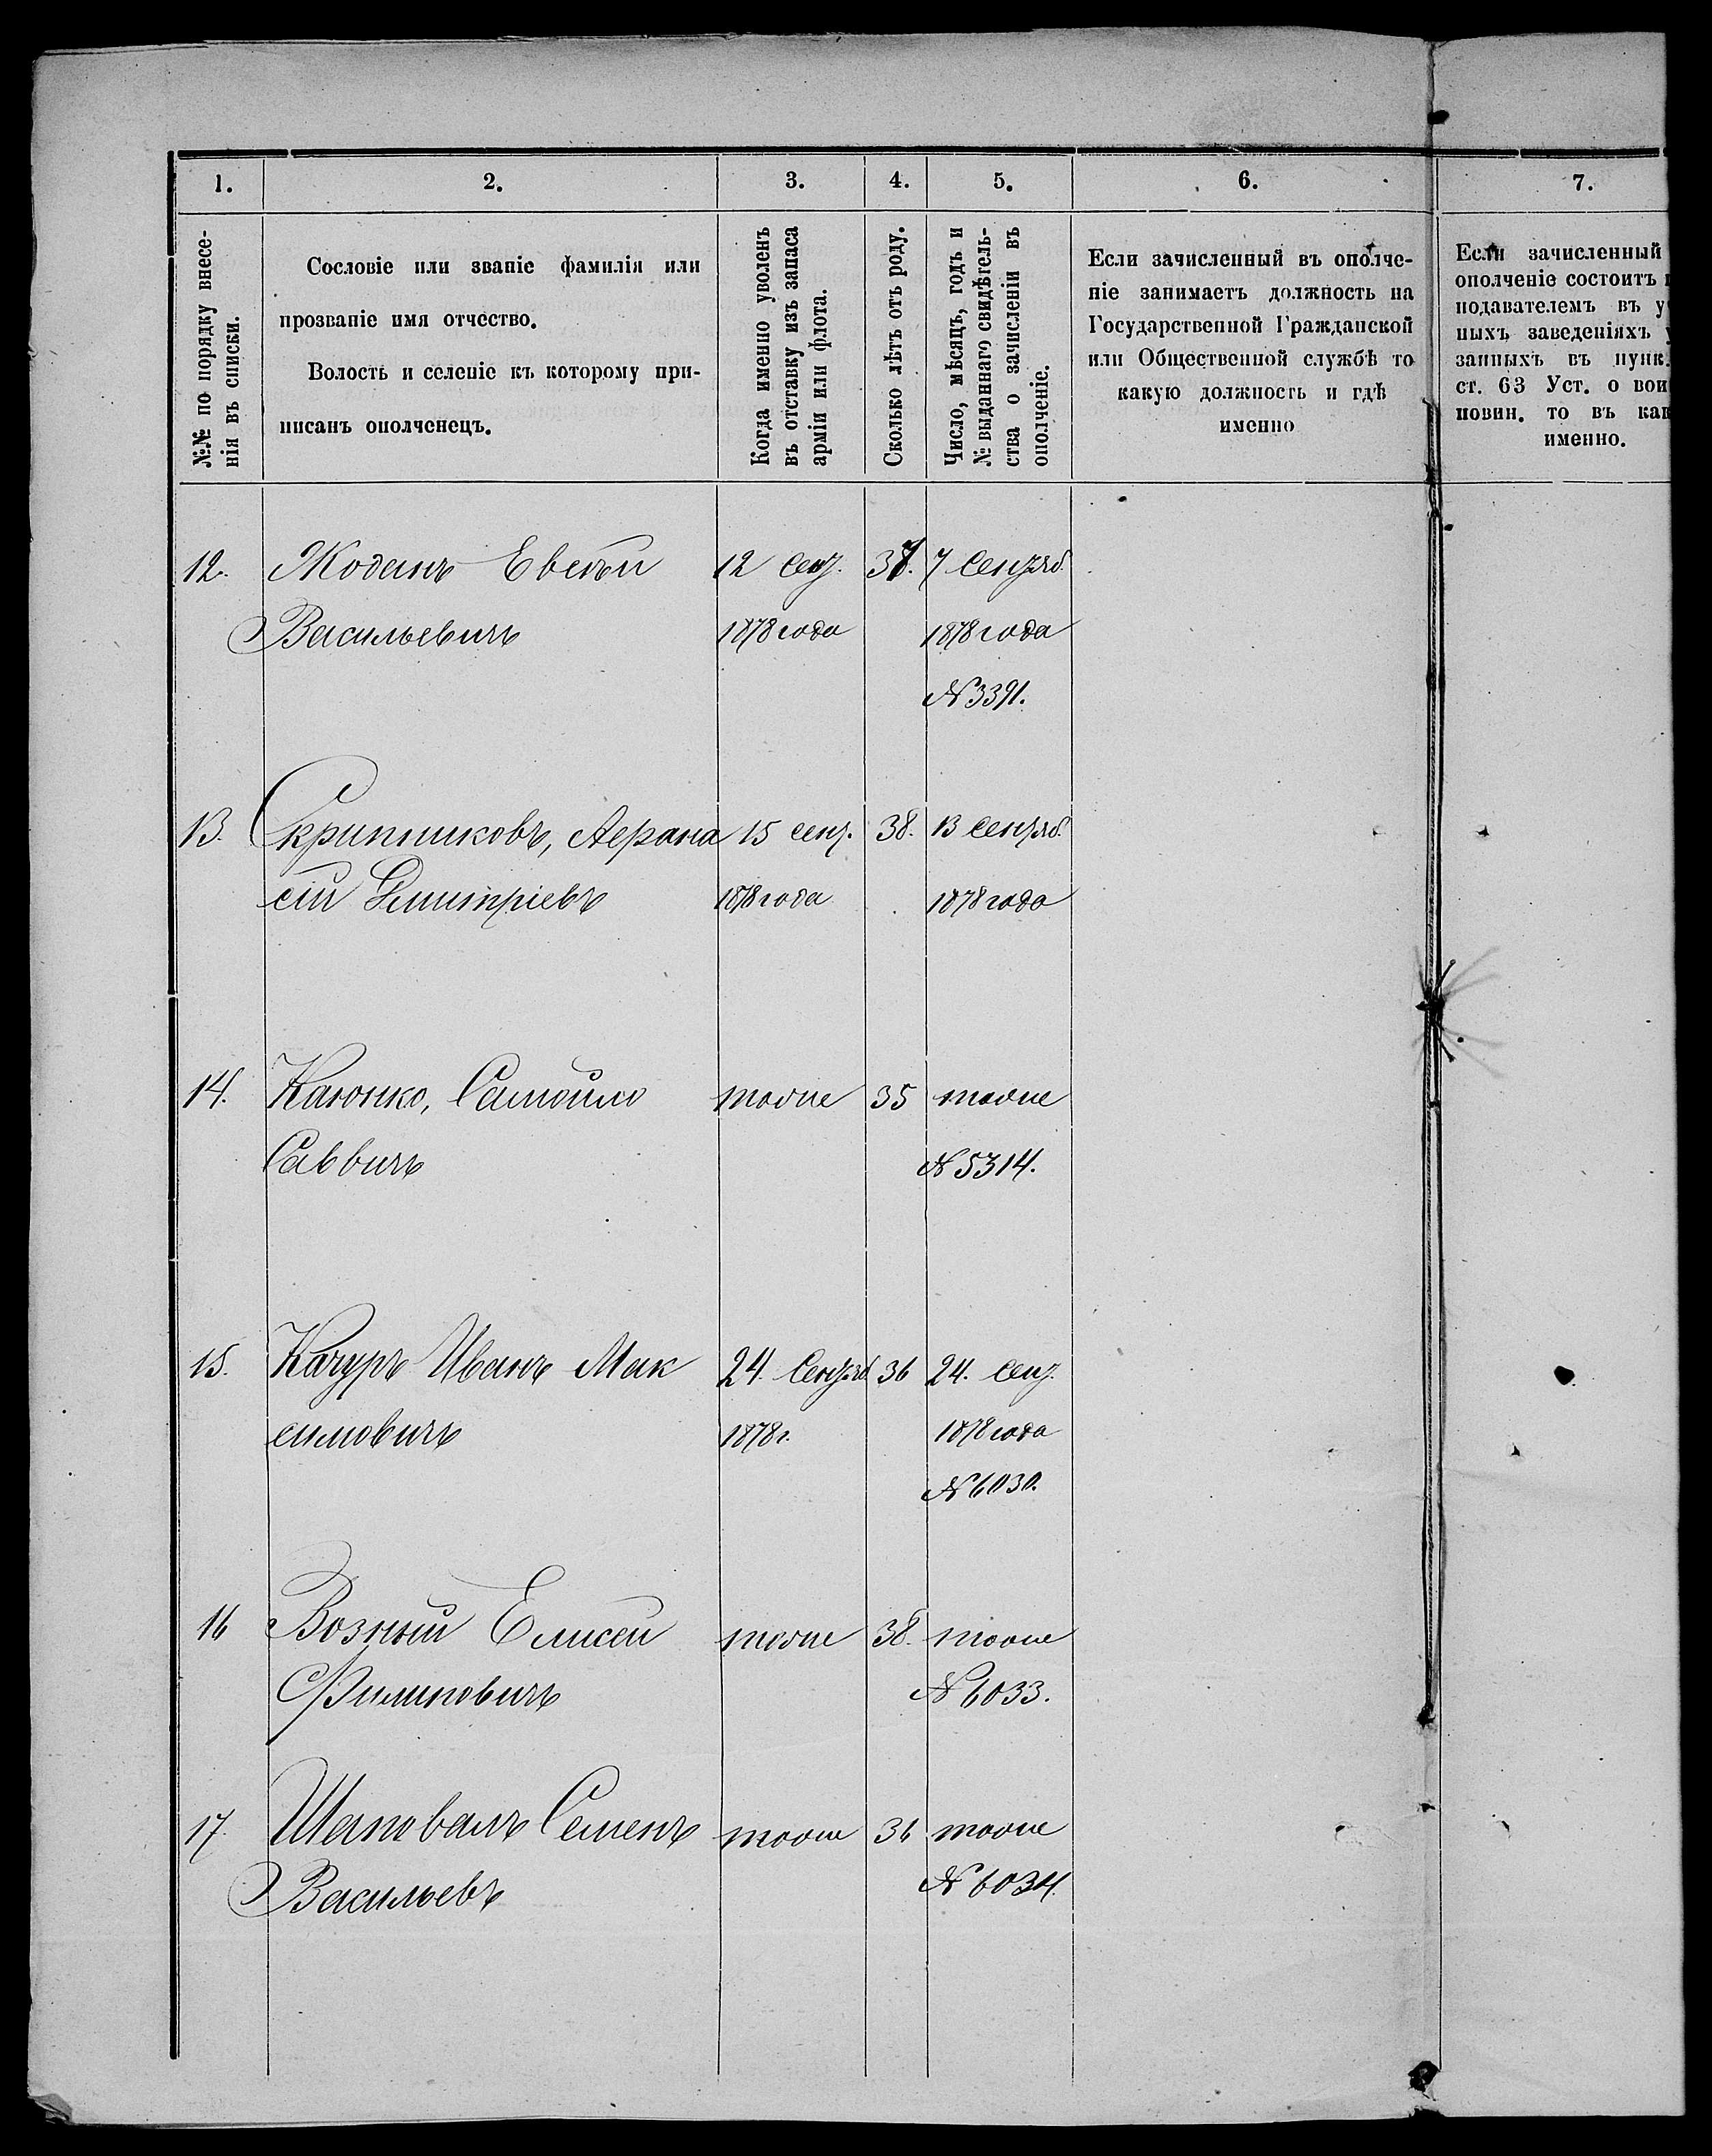 1. 2. 3. 4. 5. 6. 7.
№№ по порядку внесе-
нія въ списки.
Сословіе или званіе фамилія или
прозваніе имя отчество.
Волость и селеніе къ которому при-
писанъ ополченецъ.
Когда именно уволенъ
въ отставку изъ запаса
арміи или флота.
Сколько лѣтъ отъ роду.
Число, мѣсяцъ, годъ и
№ выданнаго свидѣтель-
ства о зачисленіи въ
ополченіе.
Если зачисленный въ ополче-
ніе занимаетъ должность на
Государственной Гражданской
или Общественной службѣ то
какую должность и гдѣ
именно
Если зачисленный
ополченіе состоитъ
подавателемъ въ у
ныхъ заведеніяхъ у
занныхъ въ пунк.
ст. 63 Уст. о вои
повин. то въ как
именно.
12. Жоданъ 12 сент. 7 Сентяб.
Васильевичъ 1878 года 1878 года
№ 3391.
13. Скрипниковъ, Афана 15 сент. 38. 13 сентяб.
сій Дмитріевъ 1878 года 1878 года
14. Самойло тоже 35 тоже
Саввичъ № 5314.
15. Качуръ Иванъ Мак 24. Сентяб. 36 24. сент.
симовичъ 1878 г. 1878 года
№ 6030.
16 Возный Елисей тоже 38. тоже
Филиповичъ № 6033.
17. Шаповалъ Семенъ тоже 36 тоже
Васильевъ № 6034.